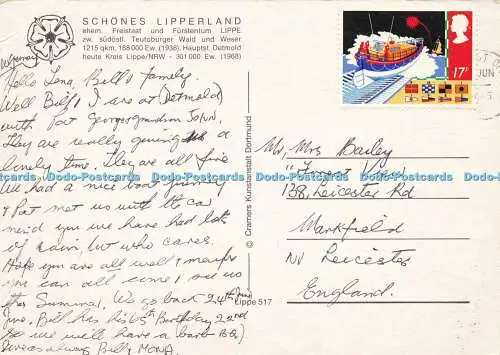 SCHÖNES LIPPERLAND
ehem. Freistaat und Fürstentum LIPPE
zw. südöstl. Teutoburger Wald und Weser
1215 qkm, 188 000 Ew. (1938), Hauptst. Detmold
heute Kreis Lippe/NRW - 301 000 Ew. (1968)
Germany
Hello Lena, Bill & family.
Well Bill & I are at (Detmold)
with Pat George grandson John.
They are really giving us a
lovely time. They are all fine
We had a nice boat journey
& Pat met us with the car
mind you we have had lots
of rain, but who cares.
Hope you are all well & maybe
you can all come & see us
this Summer. We go back 24th June
June. Bill has his 65th Birthday 22nd
so we will have a barb BQ
always Bill & MONA
© Cramers Kunstanstalt Dortmund
Lippe 517
17P
JUN
Mr, Mrs Bailey
138, Leicester Rd
Markfield
Nr Leicester
England.
Dodo-Postcards Dodo-Postcards Dodo-Postcards Dodo-Postcards